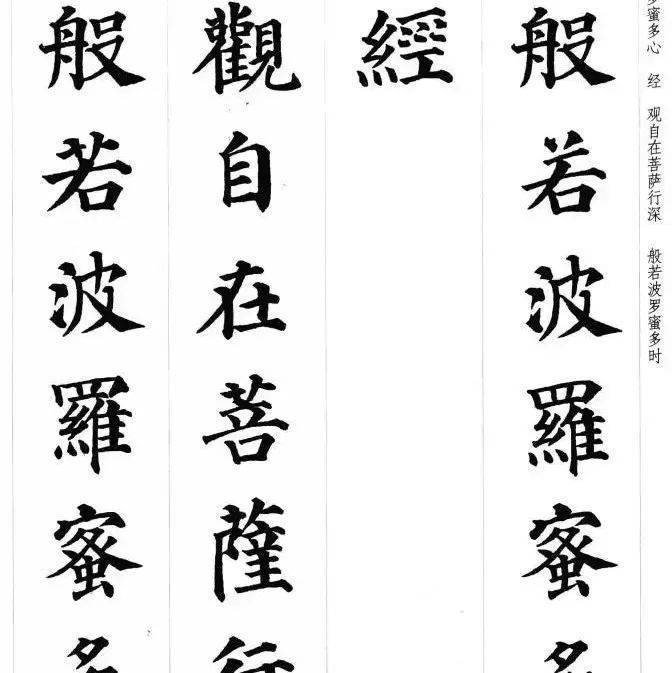 蜜多心 经 观自在菩萨行深 般若波罗蜜多时
般若波羅蜜多
經
觀自在菩薩行
般若波羅蜜多